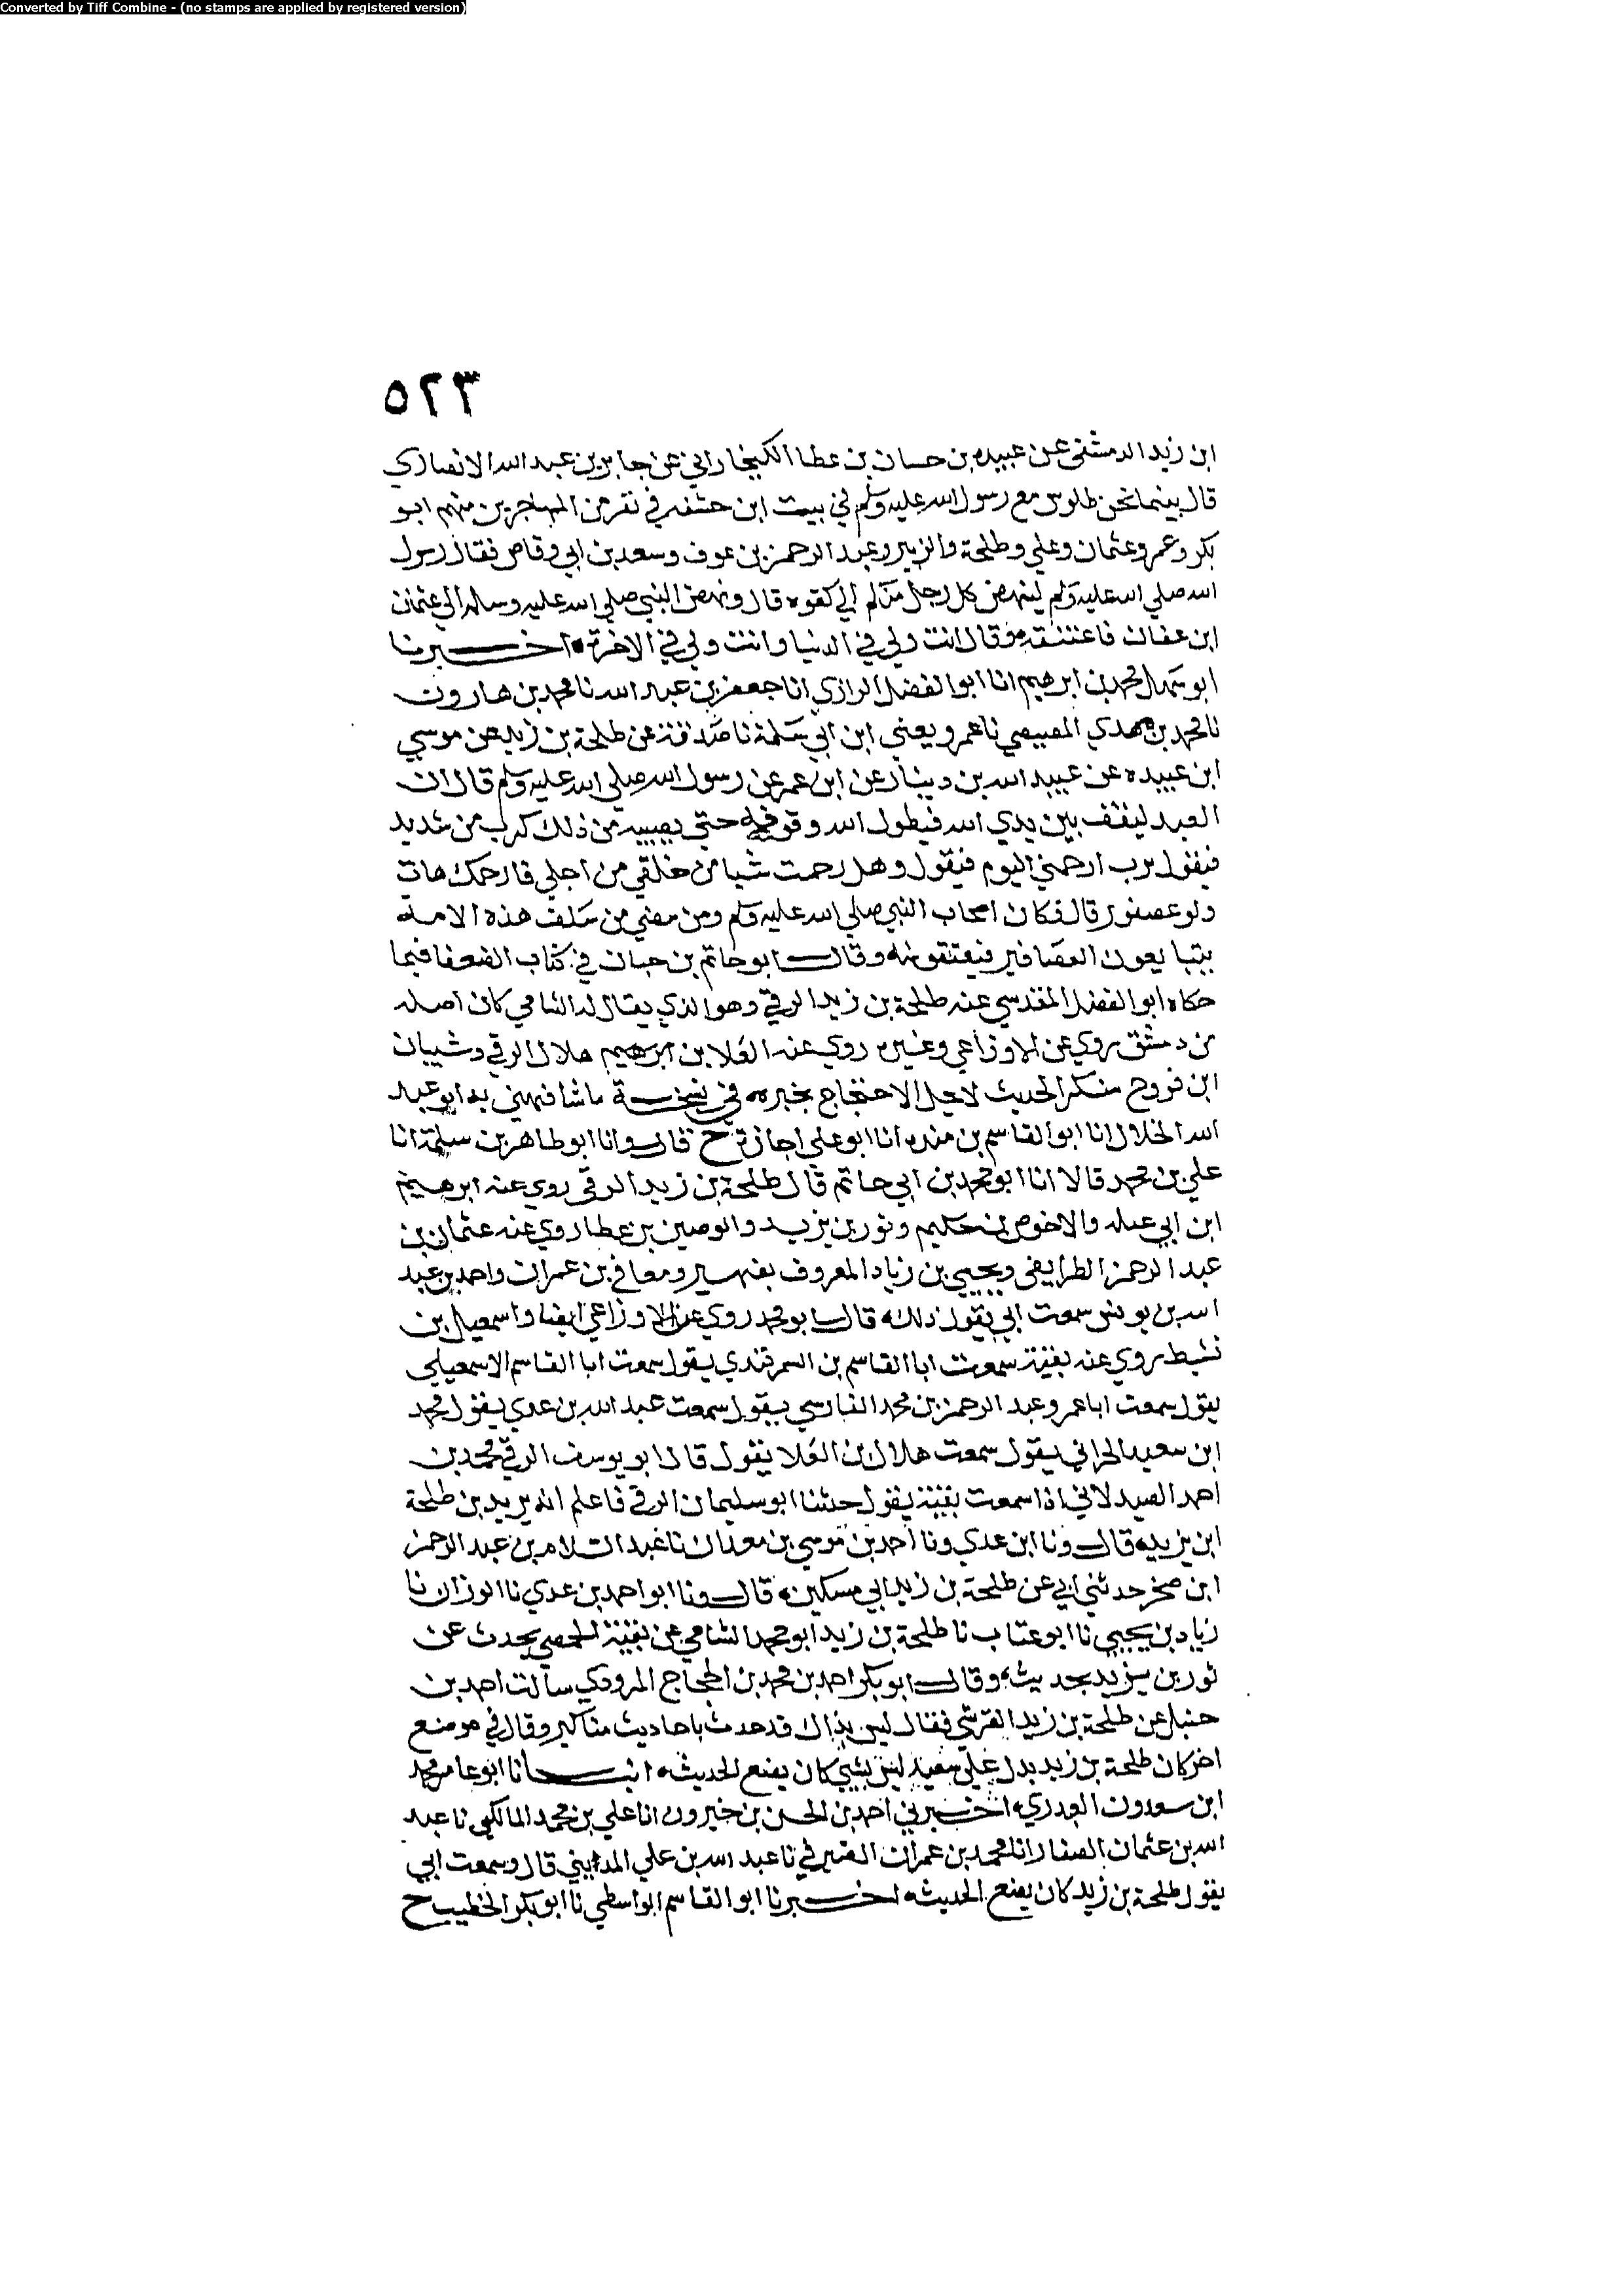 Converted by Tiff Combine - (no stamps are applied by registered version)
٥٢٣
ابن زيد الدمشقي عن عبيده بن حسان بن عطا الكيخاراني عن جابر بن عبد الله الانصاري
قال بينما نحن جلوس مع رسول الله صلى الله عليه وسلم في بيت ابن حشفه في نفر من المهاجرين منهم ابو
بكر وعمر وعثمان وعلي وطلحة والزبير وعبد الرحمن بن عوف وسعد بن ابي وقاص فقال رسول
الله صلي الله عليه وسلم لينهض كل رجل منكم الي كفوه قال ونهض النبي صلي الله عليه وسلم الي عثمان
ابن عفان فاعتنقه وقال انت ولي في الدنيا وانت ولي في الاخرة اخبرنا
ابو سهل محمد بن ابرهيم انا ابو الفضل الرازي انا جعفر بن عبد الله نا محمد بن هارون
نا محمد بن مهدي المصيصي نا عمرو يعني ابن ابي سلمة نا صدقة عن طلحة بن زيد عن موسي
ابن عبيده عن عبيد الله بن دينار عن ابن عمر عن رسول الله صلي الله عليه وسلم قال ان
العبد ليقف بين يدي الله فيطول الله وقوفه حتي يصيبه من ذلك كرب من شديد
فيقول يرب ارحمني اليوم فيقول وهل رحمت شيا من خلقي من اجلي فارحمك هات
ولو عصفور قال فكان اصحاب النبي صلي الله عليه وسلم ومن مضي من سلف هذه الامة
يتبايعون العصافير فيعتقونه وقال ابو حاتم بن حبان في كتاب الضعفا فيما
حكاه ابو الفضل المقدسي عنه طلحة بن زيد الرقي وهو الذي يقال له الشامي كان اصله
من دمشق يروي عن الاوزاعي وغيره روي عنه العلا بن ابرهيم هلال الرقي وشيبان
ابن فروح منكر الحديث لا يحل الاحتجاج بخبره في نسخة ما شافهني به ابو عبد
الله الخلال انا ابو القاسم بن منده انا ابو علي اجازة ح قال وانا ابو طاهر بن سلمة انا
علي بن محمد قالا انا ابو محمد بن ابي حاتم قال طلحة بن زيد الرقي روي عنه ابرهيم
ابن ابي عبله والاخوص بن حكيم وثور بن يزيد والوصين بن عطا روي عنه عثمان بن
عبد الرحمن الطرايفي ويحيي بن زياد المعروف بفهير ومعافي بن عمران واحمد بن عبد
الله بن يونس سمعت ابي يقول ذلك قال ابو محمد روي عن الاوزاعي ايضا واسمعيل بن
نشيط يروي عنه بقية سمعت ابا القاسم بن السمرقندي يقول سمعت ابا القاسم الاسمعيلي
يقول سمعت ابا عمرو عبد الرحمن بن محمد الفارسي يقول سمعت عبد الله بن عدي يقول محمد
ابن سعيد الحراني يقول سمعت هلال بن العلا يقول قال ابو يوسف الرقي محمد بن
احمد الصيدلاني اذا سمعت بقية يقول حدثنا ابو سليمان الرقي فاعلم انه يريد بن طلحة
ابن يزيد قال ونا ابن عدي ونا احمد بن موسي بن معدان نا عبد السلام بن عبد الرحمن
ابن صخر حدثني ابي عن طلحة بن زيد ابي مسكين قال ونا ابو احمد بن عدي نا الوزان نا
زياد بن يحيي نا ابو عتاب نا طلحة بن زيد ابو محمد الشامي عن بقية الحمصي يحدث عن
ثور بن يزيد بحديث وقال ابو بكر احمد بن محمد بن الحجاج المروذي سالت احمد بن
حنبل عن طلحة بن زيد القرشي فقال ليس بذاك قد حدث باحاديث مناكير وقال في موضع
اخر كان طلحة بن زيد بدل علي سعيد ليس بشي كان يضع الحديث انبانا ابو عامر محمد
ابن سعدون العبدري اخبرني احمد بن الحسن بن خيرون انا علي بن محمد المالكي نا عبد
الله بن عثمان الصفار انا محمد بن عمران الصيرفي نا عبد الله بن علي المدايني قال وسمعت ابي
يقول طلحة بن زيد كان يضع الحديث اخبرنا ابو القاسم الواسطي نا ابو بكر الخطيب ح